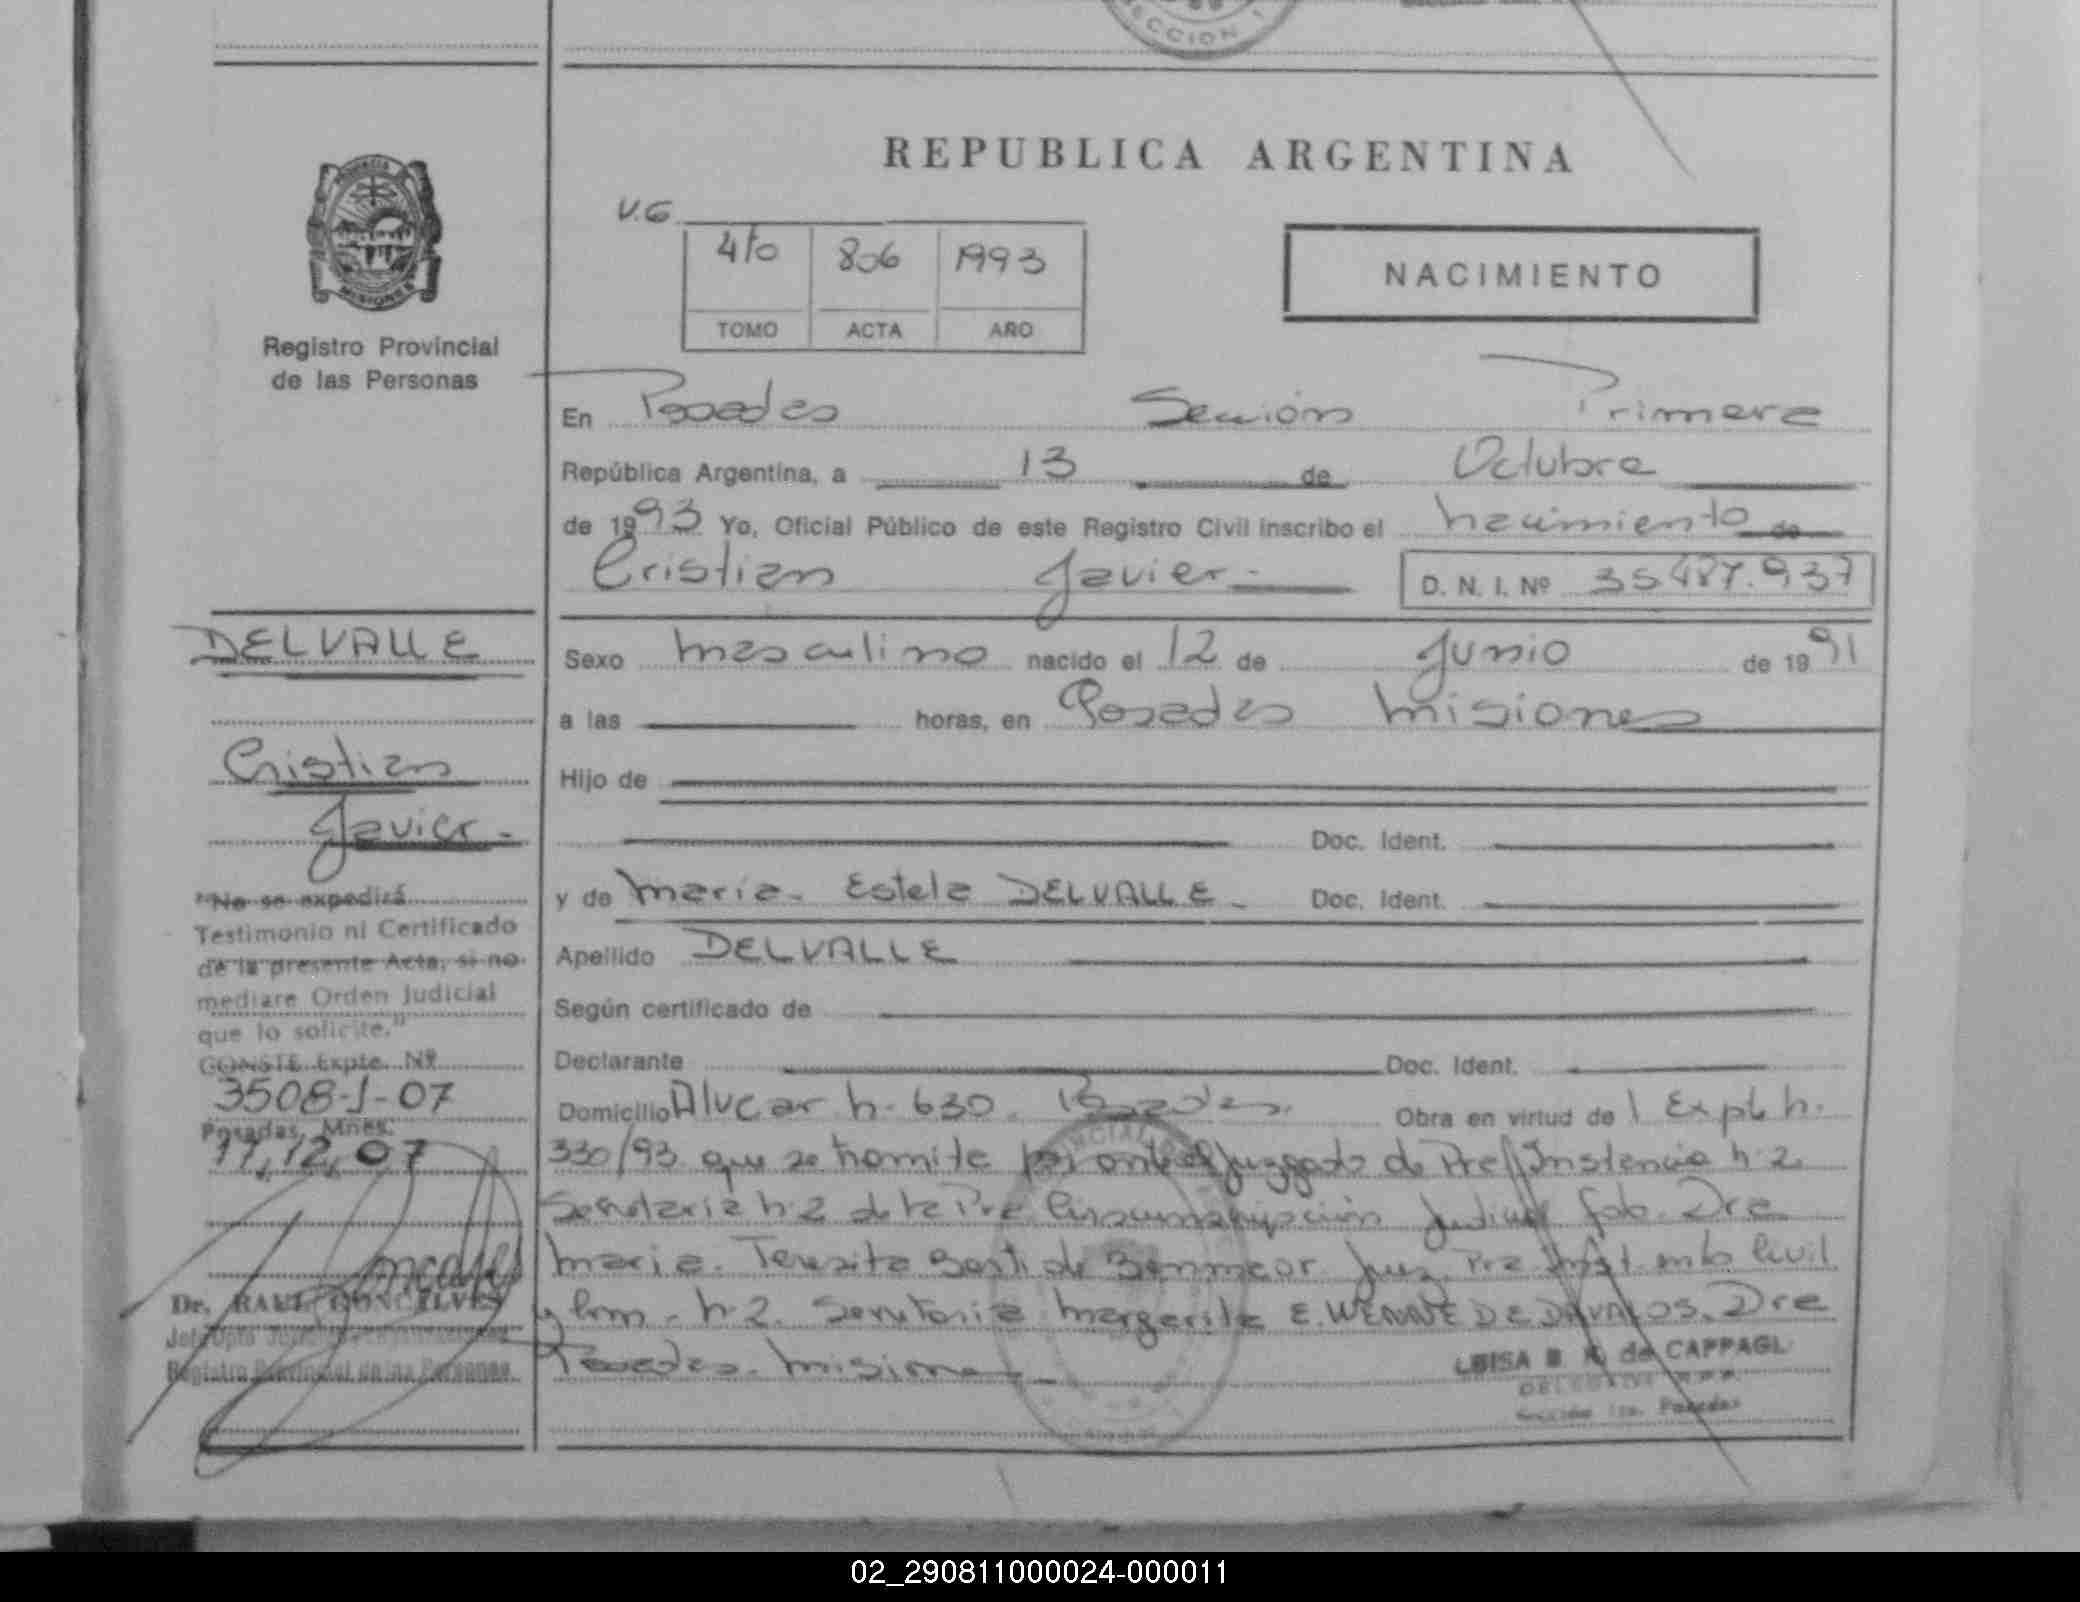 SECCION 1
REPUBLICA ARGENTINA
NACIMIENTO
V.G.
4to 806 1993
TOMO ACTA AÑO
PROVINCIA
MISIONES
Registro Provincial
de las Personas
En Posadas Sección Primera
República Argentina, a 13 de Octubre
de 1993 Yo, Oficial Público de este Registro Civil inscribo el nacimiento de
Cristian Javier.- D. N. I. Nº 35487.937
Sexo masculino nacido el 12 de Junio de 1991
a las horas, en Posadas Misiones
Hijo de
Doc. Ident.
y de Maria. Estela DELVALLE. Doc. Ident.
Apellido DELVALLE
Según certificado de
Declarante Doc. Ident.
Domicilio Alvear n. 630. Posadas. Obra en virtud de Expte n.
330/93 que se tramite por ante el Juzgado de Pre Instancia n. 2
Secretaria n. 2 de la Pra Circunscripción Judicial Dra
Maria. Teresita de Juez Pra Inst. Civil
y Com. n. 2. Secretaria Margarita E. WENNE DE DAVALOS. Dra
Posadas. Misiones
LUISA B. de CAPPAGLI
Sección 1ra. Posadas
DELVALLE
Cristian
Javier.-
"No se expedirá
Testimonio ni Certificado
de la presente Acta, si no
mediare Orden Judicial
que lo solicite."
CONSTE Expte. Nº
3508-J-07
Posadas, Mnes.
17,12,07
Dr. RAUL GONCALVES
Registro Provincial de las Personas
02_290811000024-000011